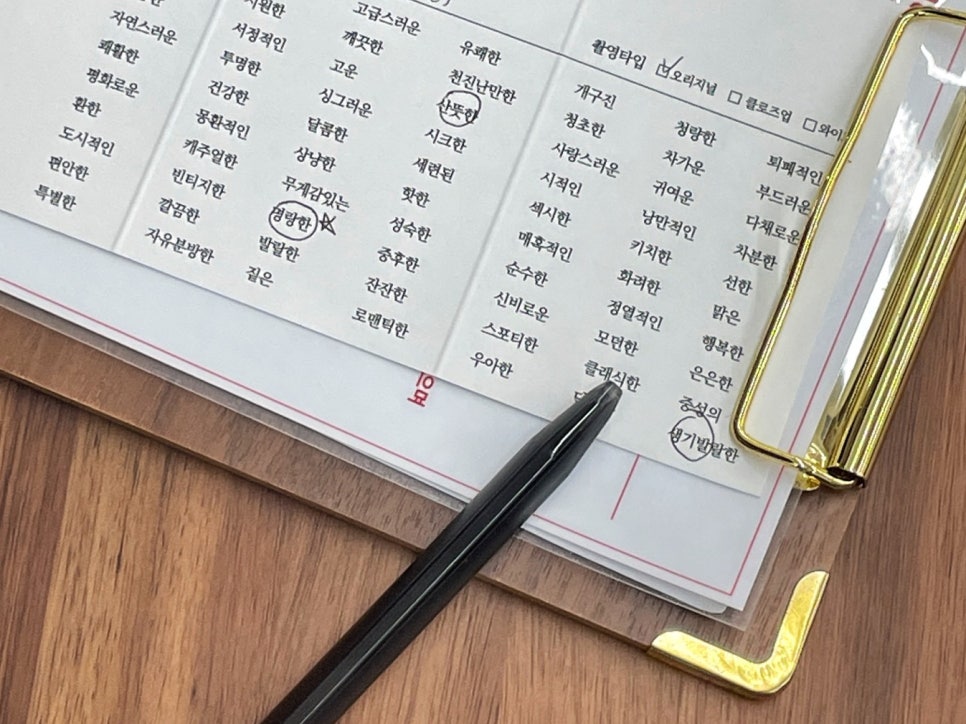 촬영타입 오리지널 클로즈업 와이
자연스러운
쾌활한
평화로운
환한
도시적인
편안한
특별한
시원한
서정적인
투명한
건강한
몽환적인
캐주얼한
빈티지한
깔끔한
자유분방한
고급스러운
깨끗한
고운
싱그러운
달콤한
상냥한
무게감있는
명랑한
발랄한
짙은
유쾌한
천진난만한
산뜻한
시크한
세련된
핫한
성숙한
중후한
잔잔한
로맨틱한
개구진
청초한
사랑스러운
시적인
섹시한
매혹적인
순수한
신비로운
스포티한
우아한
청량한
차가운
귀여운
낭만적인
키치한
화려한
정열적인
모던한
클래식한
퇴폐적인
부드러운
다채로운
차분한
선한
맑은
행복한
은은한
중성의
생기발랄한